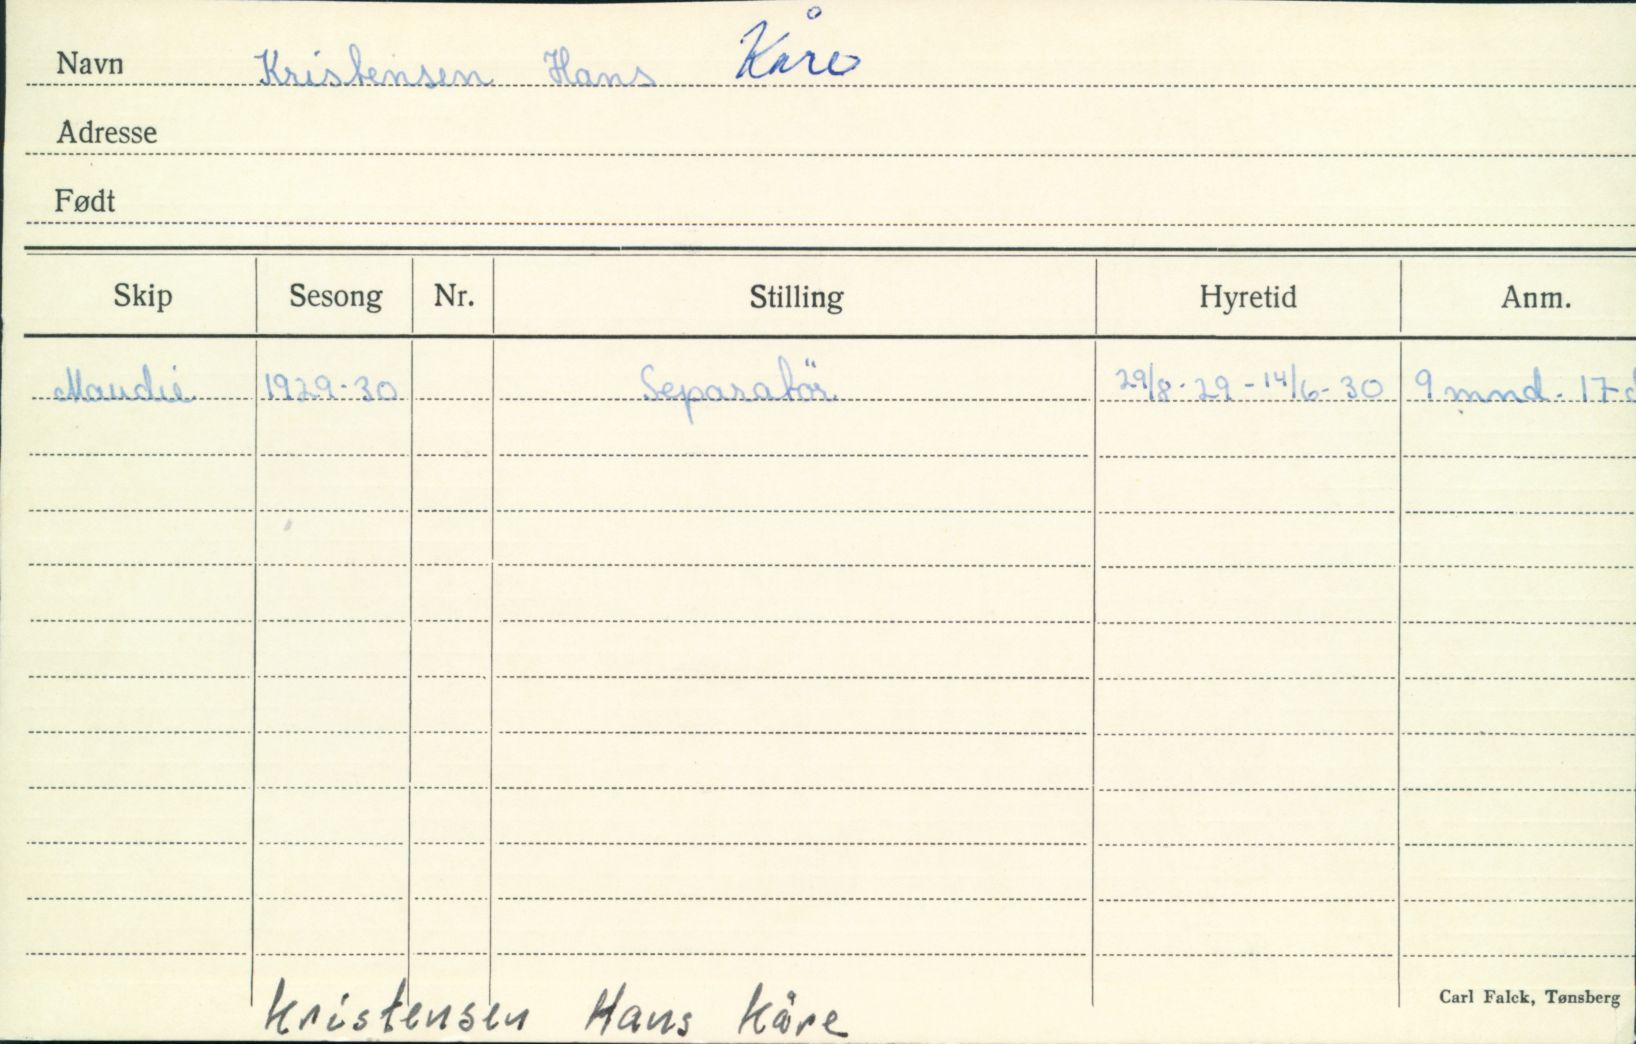 Navn Kristensen Hans Kåre
Adresse
Født
Skip Sesong Nr. Stilling Hyretid Anm.
Maudie 1929-30 Separatör 29/8-29-14/6-30 9 mnd. 17 d
Carl Falck, Tønsberg
Kristensen Hans Kåre